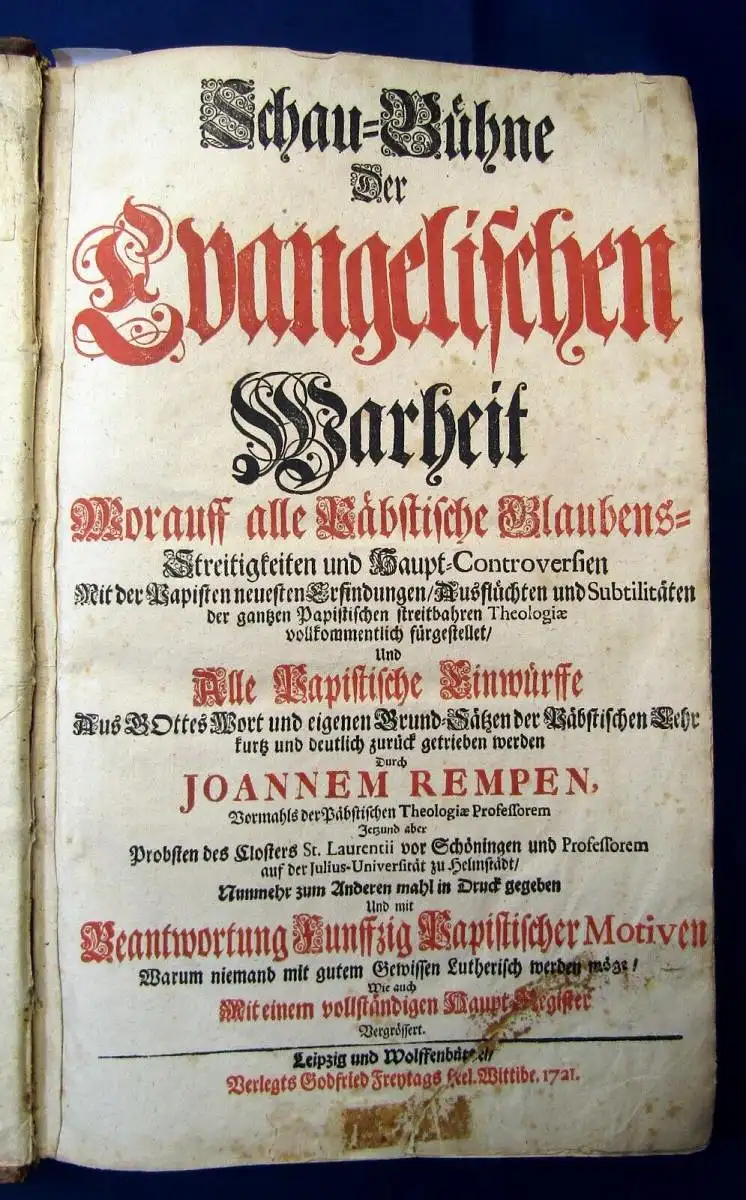 Schau=Bühne
Der
Evangelischen
Warheit
Worauff alle Päbstische Glaubens=
Streitigkeiten und Haupt=Controversien
Mit der Papisten neuesten Erfindungen/Ausflüchten und Subtilitäten
der gantzen Papistischen streitbahren Theologiæ
vollkommentlich fürgestellet/
Und
Alle Papistische Einwürffe
Aus GOttes Wort und eigenen Grund=Sätzen der Päbstischen Lehr
kurtz und deutlich zurück getrieben werden
Durch
JOANNEM REMPEN,
Vormahls der Päbstischen Theologiæ Professorem
Jetzund aber
Probsten des Closters St. Laurentii vor Schöningen und Professorem
auf der Julius-Universität zu Helmstädt/
Nunmehr zum Anderen mahl in Druck gegeben
Und mit
Beantwortung Funffzig Papistischer Motiven
Warum niemand mit gutem Gewissen Lutherisch werden möge/
Wie auch
Mit einem vollständigen Haupt=Register
Vergrössert.
Leipzig und Wolffenbüttel/
Verlegts Godfried Freytags seel. Wittibe. 1721.